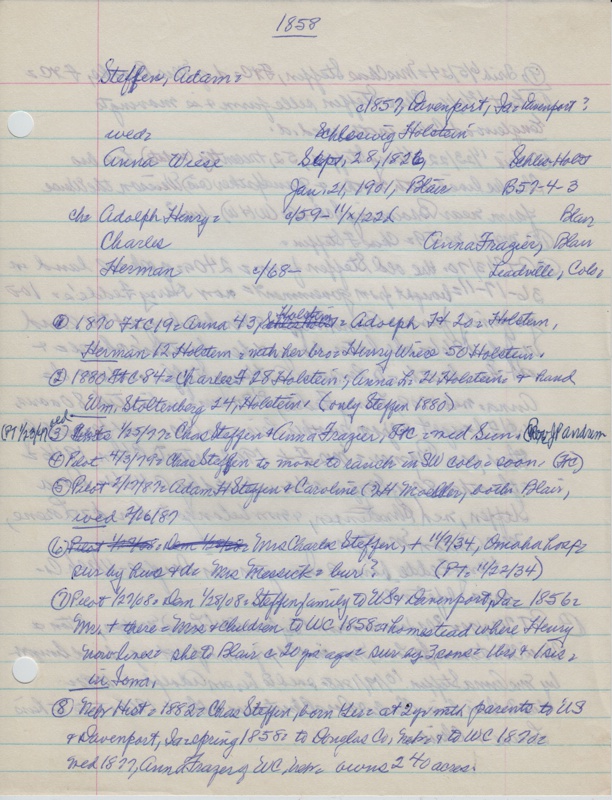 1858
Steffen, Adam=
c1857, Davenport, Ia= Davenport?
wed= Schleswig Holstein
Anna Wiese Sept, 28, 1826, Schles-Holst
Jan. 21, 1901, Blair B57-4-3
ch= Adolph Henry= c/59- Blair
Charles Anna Frazier, Blair
Herman c/68- Leadville, Colo,
① 1870 FtC 19= Anna 43, Holstein= Adolph H 20= Holstein,
Herman 12 Holstein,= with her bro= Henry Wiese 50 Holstein.
② 1880 FtC 84= Charles F 28 Holstein, Anna L. 21 Holstein & hand
Wm, Stoltenberg 24, Holstein, (only Steffen 1880)
(PT 1/29/97) ③ wed 1/25/77= Chas Steffen & Anna Frazier, FtC = wed Sun.
④ Pilot 4/3/79= Chas Steffen to move to ranch in SW Colo= soon, (FtC)
⑤ Pilot 2/17/87= Adam H Steffen & Caroline (?H Moeller, both Blair,
wed 2/16/87
⑥ Mrs Charles Steffen, + 11/7/34, Omaha hosp=
sur by hus & d= Mrs Messick= bur? (PT= 11/22/34)
⑦ Pilot 1/27/08= Dem 1/28/08= Steffen family to US & Davenport, Ia= 1856=
Mr, + there= Mrs & children to WC 1858= homestead where Henry
now lives= she to Blair c 20 yrs ago= sur by 3 sons= 1bro & 1sis,
in Iowa,
⑧ Nebr Hist= 1882= Chas Steffen, born Ger= at 2yr with parents to US
& Davenport, Ia= spring 1858= to Douglas Co, Neb= & to WC 1870=
wed 1877, Anna Frazer of WC, Neb= owns 240 acres.